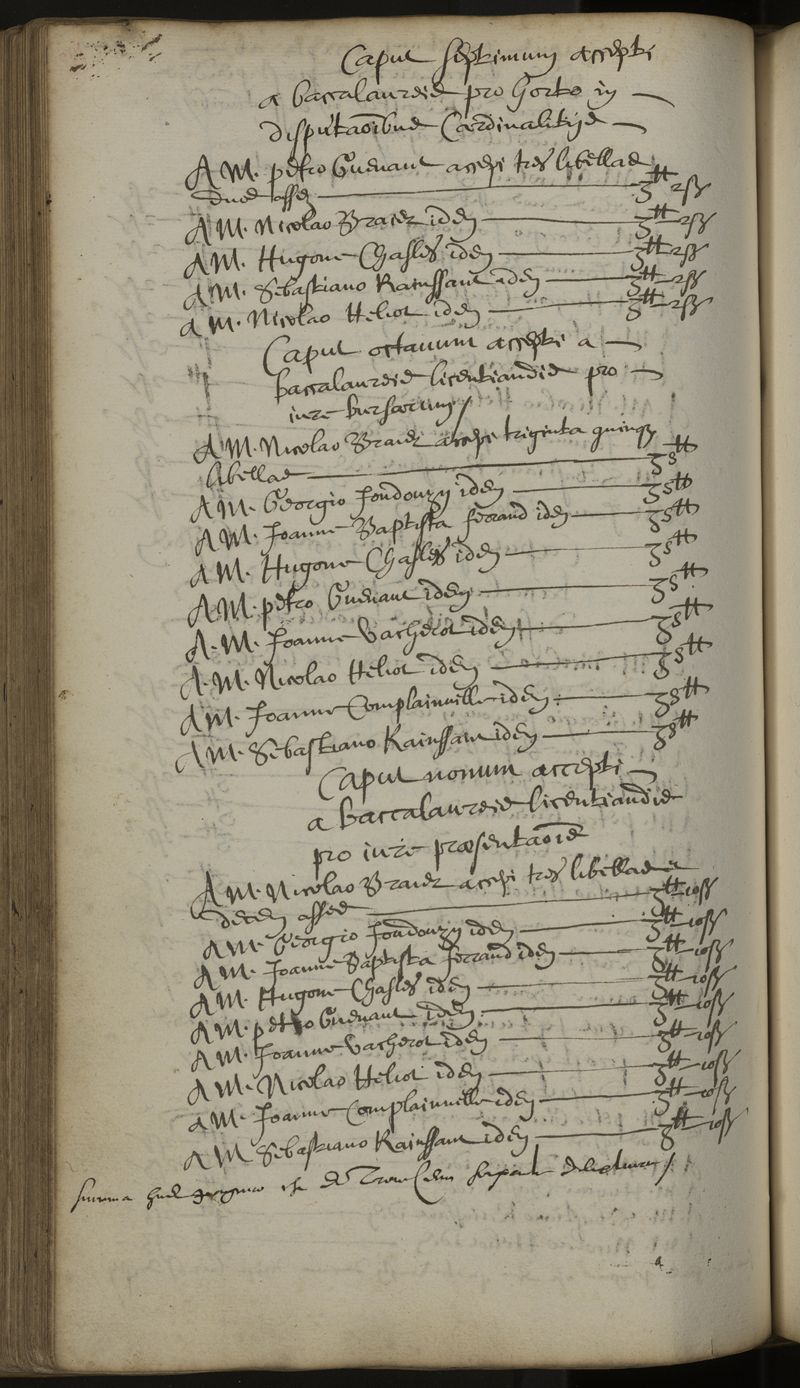 Caput septimum accepti
a baccalaureis pro horto in
disputaõibus Cardinalitijs
A M. petro Guenaut accepi tres libellas
duos asses 3lt 2ß
A M. Nicolao Braier idem 3lt 2ß
A M. Hugone Chasles idem 3lt 2ß
A M. Sebastiano Rainssant idem 3lt 2ß
A M. Nicolao Heliot idem 3lt 2ß
Caput octauum accepti a
baccalaureis licentiandis pro
iure bursarum /
A M. Nicolao Braier accepi triginta quinq3
libellas 35lt
A M. Georgio Joudouyn idem 35lt
A M. Joanne Baptista ferrand idem 35lt
A M. Hugone Chasles idem 35lt
A M. petro Guenaut idem 35lt
A. M. Joanne Vacherot idem 35lt
A. M. Nicolao Heliot idem 35lt
A M. Joanne Complainuille idem 35lt
A M. Sebastiano Rainssant idem 35lt
Caput nonum accepti
a baccalaureis licentiandis
pro iure præsentaõis
A M. Nicolao Braier accepi tres libellas et
decem asses 3lt 10ß
A M. Georgio Joudouyn idem 3lt 10ß
A M. Joanne Baptista ferrand idem 3lt 10ß
A M. Hugone Chasles idem 3lt 10ß
A M. petro Guenaut idem 3lt 10ß
A M. Joanne Vacherot idem 3lt 10ß
A M. Nicolao Heliot idem 3lt 10ß
A M. Joanne Complainuille idem 3lt 10ß
A M Sebastiano Rainssant idem 3lt 10ß
Summa